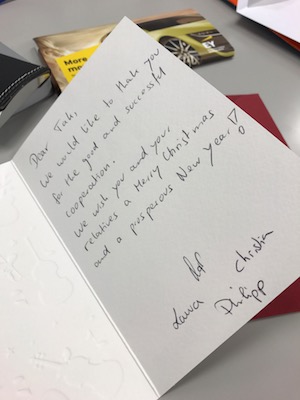 More
EY
Dear Tah,
We would like to thank you
for the good and successful
cooperation.
We wish you and your
relatives a Merry Christmas
and a prosperous New Year!
Christin
Laura
Philipp